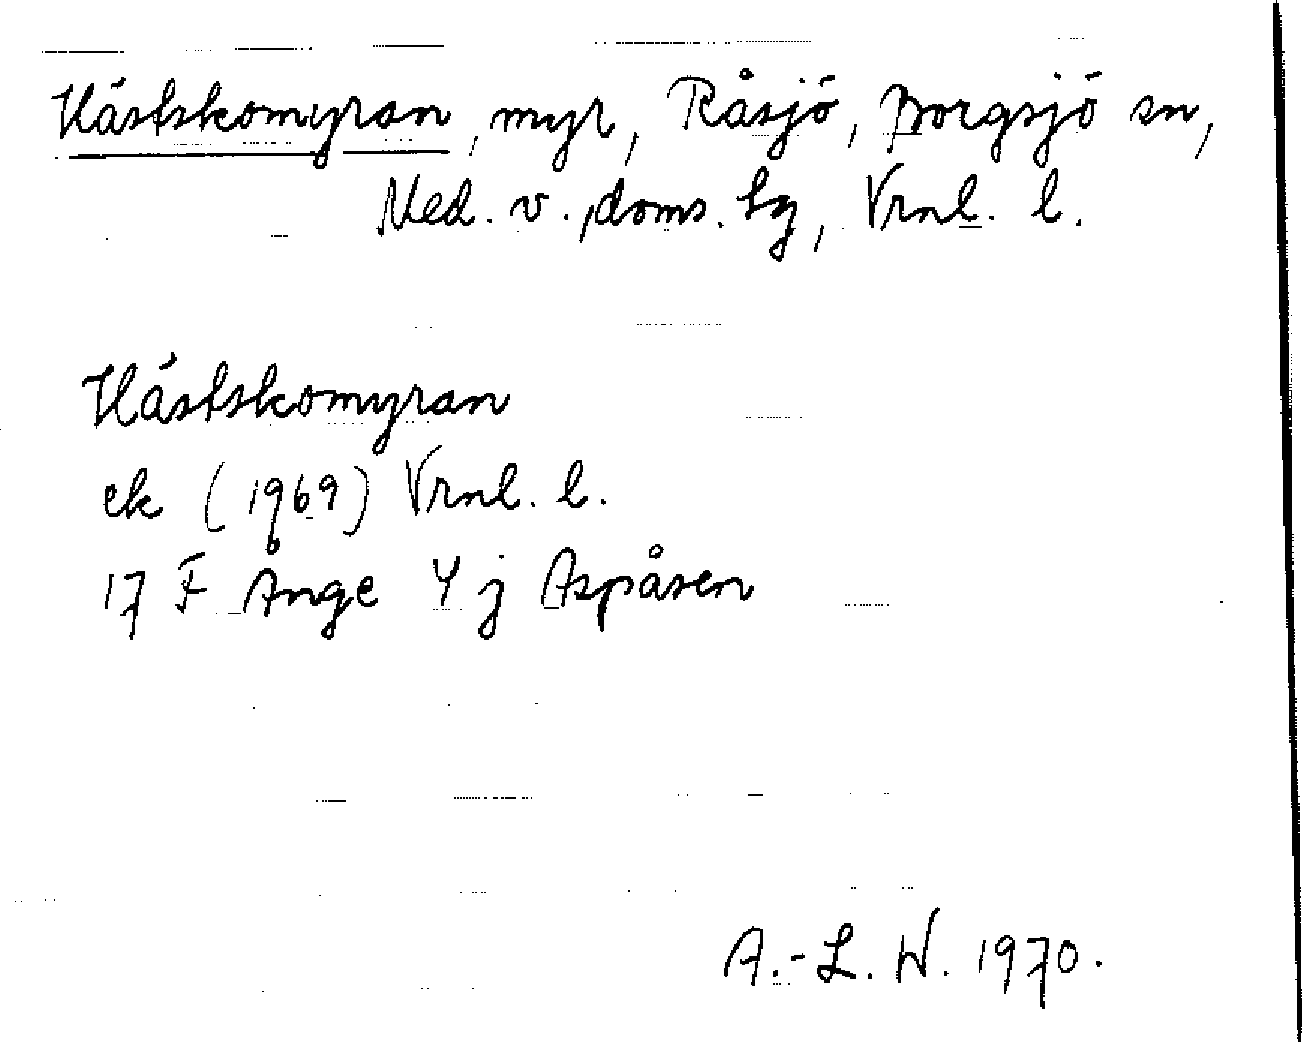 Hästskomyran, myr, Råsjö, Borgsjö sn,
Med. v. doms. tg, Vrnl. l.
Hästskomyran
ek (1969) Vrnl. l.
17 F Ånge 4 j Aspåsen
A.-L. W. 1970.